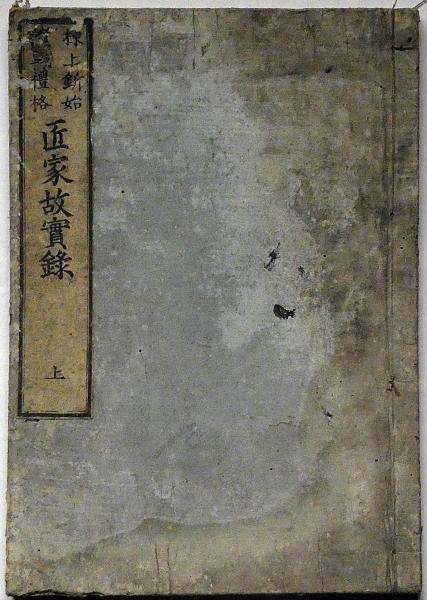 棟上釿始
禮格
匠家故實錄
上